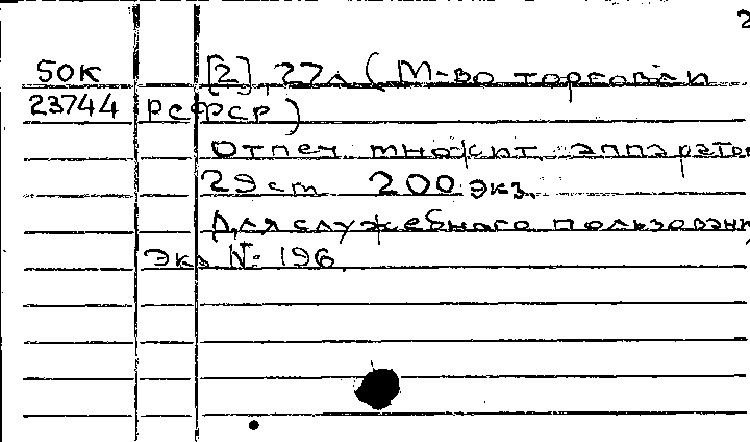 2
50К [2], 22л (М-во торговли
23744 РСФСР)
Отпеч множит. аппаратом
29 cm 200 экз.
Для служебного пользовани
Экз № 196